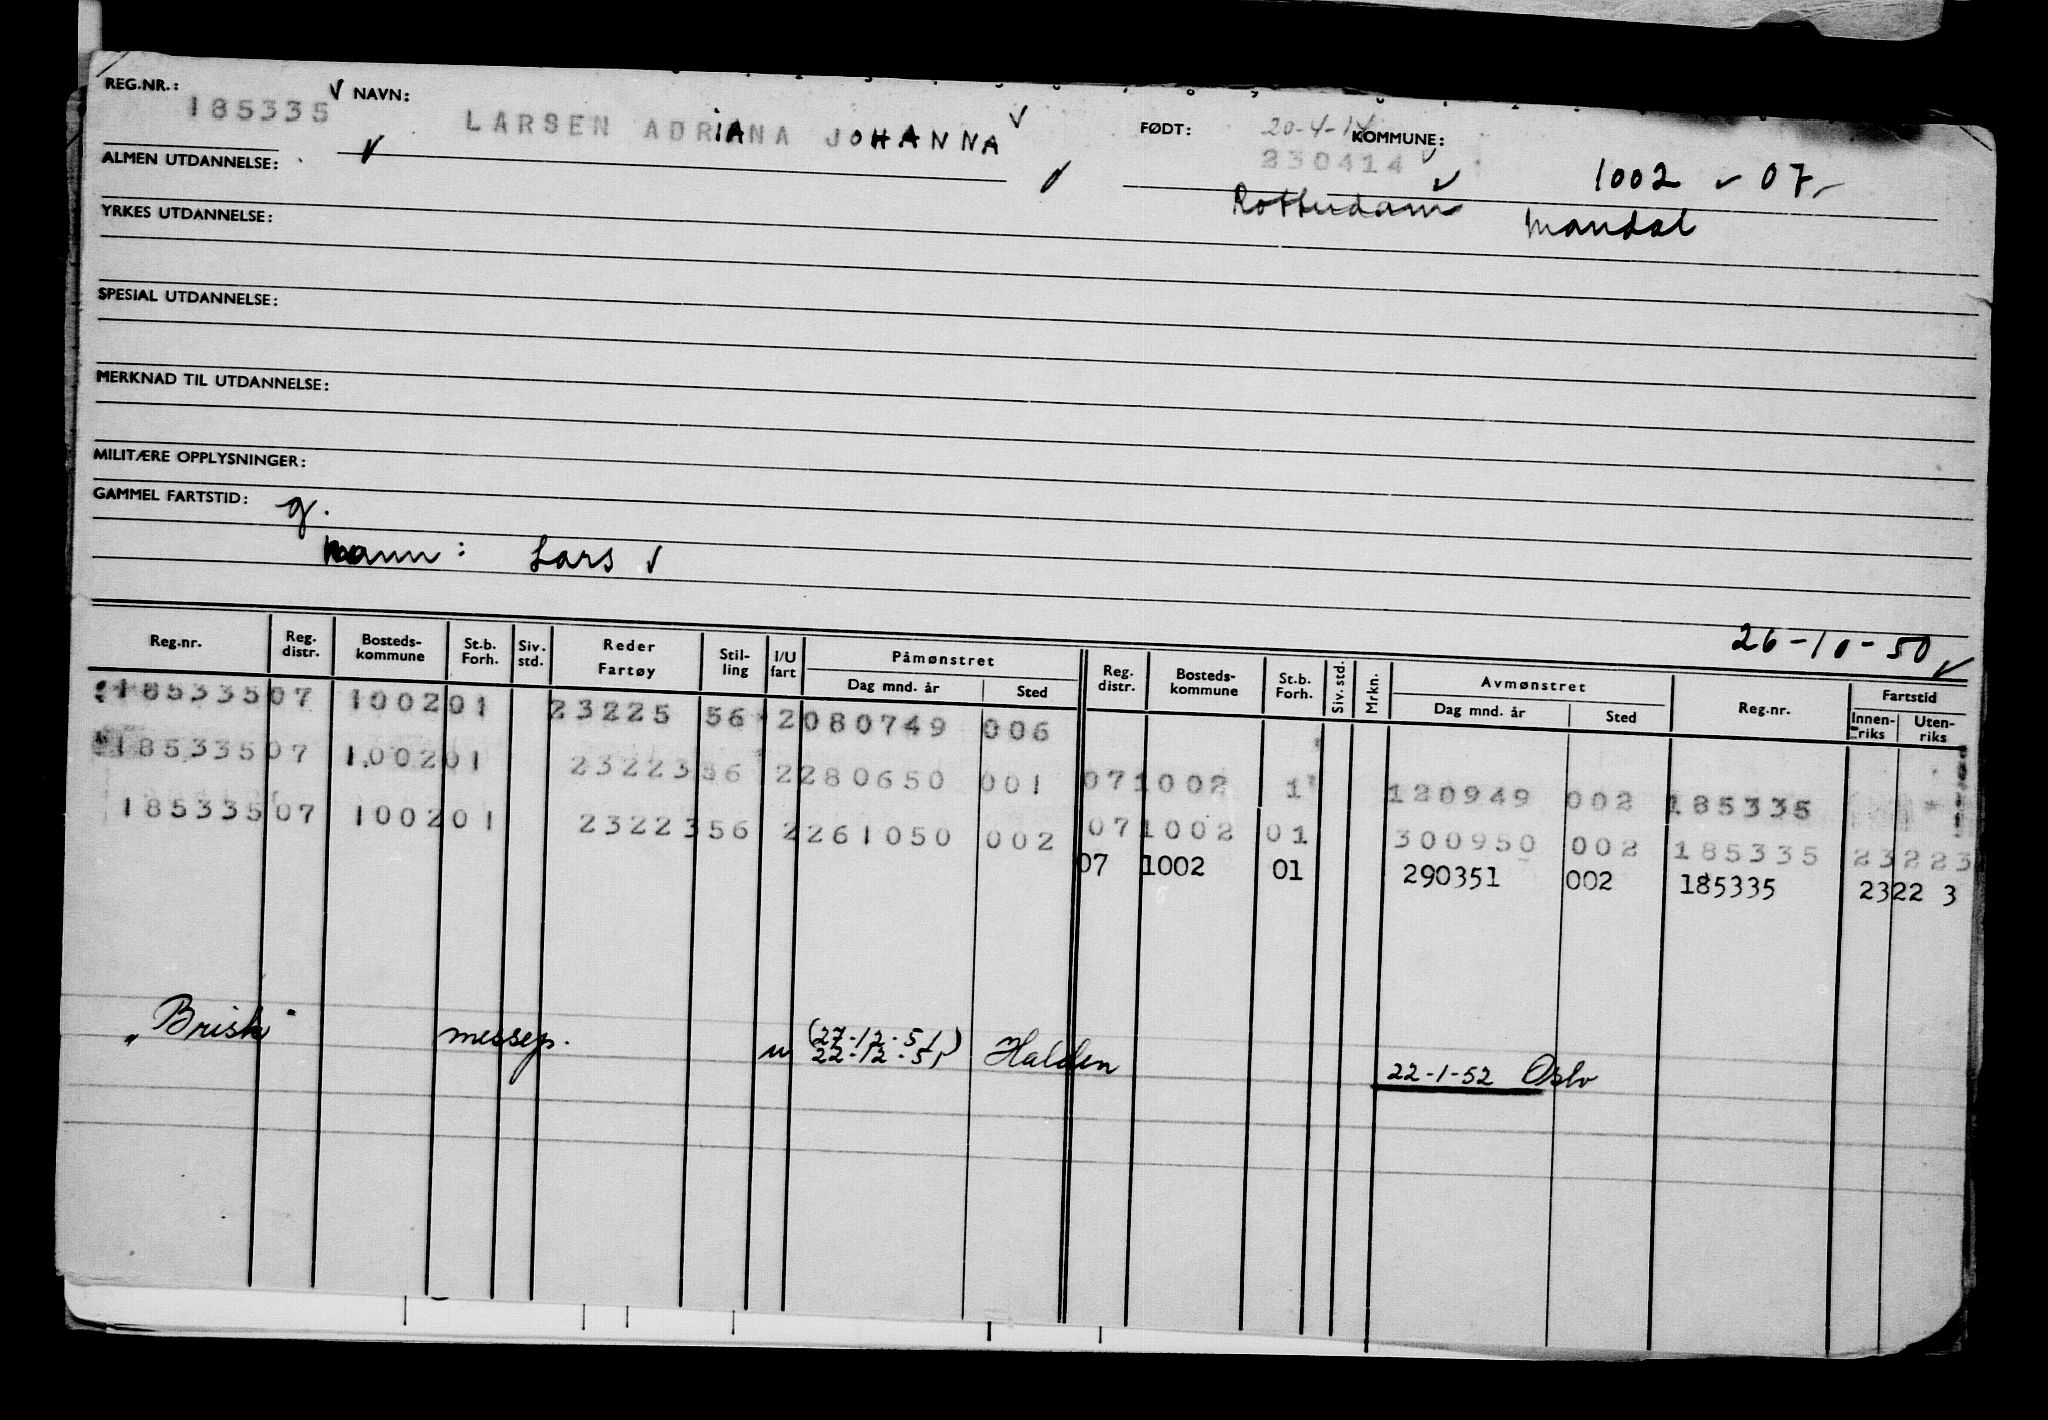 REG.NR.: 185335 NAVN: LARSEN ADRIANA JOHANNA FØDT: 20-4-14 KOMMUNE:
230414 1002 - 07
ALMEN UTDANNELSE:
Rotterdam Mandal
YRKES UTDANNELSE:
SPESIAL UTDANNELSE:
MERKNAD TIL UTDANNELSE:
MILITÆRE OPPLYSNINGER:
GAMMEL FARTSTID: g.
mann: Lars
26-10-50
Reg.nr. Reg. distr. Bosteds- kommune St.b. Forh. Siv. std. Reder Fartøy Stil- ling I/U fart Påmønstret Dag mnd. år Sted Reg. distr. Bosteds- kommune St.b. Forh. Siv. std. Mrkn. Avmønstret Dag mnd. år Sted Reg.nr. Fartstid Innen- riks Uten- riks
185335 07 1002 01 23225 56 2 080749 006
185335 07 1002 01 23223 56 2 280650 001 07 1002 1 120949 002 185335
185335 07 1002 01 23223 56 2 261050 002 07 1002 01 300950 002 185335 23223
07 1002 01 290351 002 185335 2322 3
"Brisk" messep. u (27-12-51) Halden
22-12-51 22-1-52 Oslo